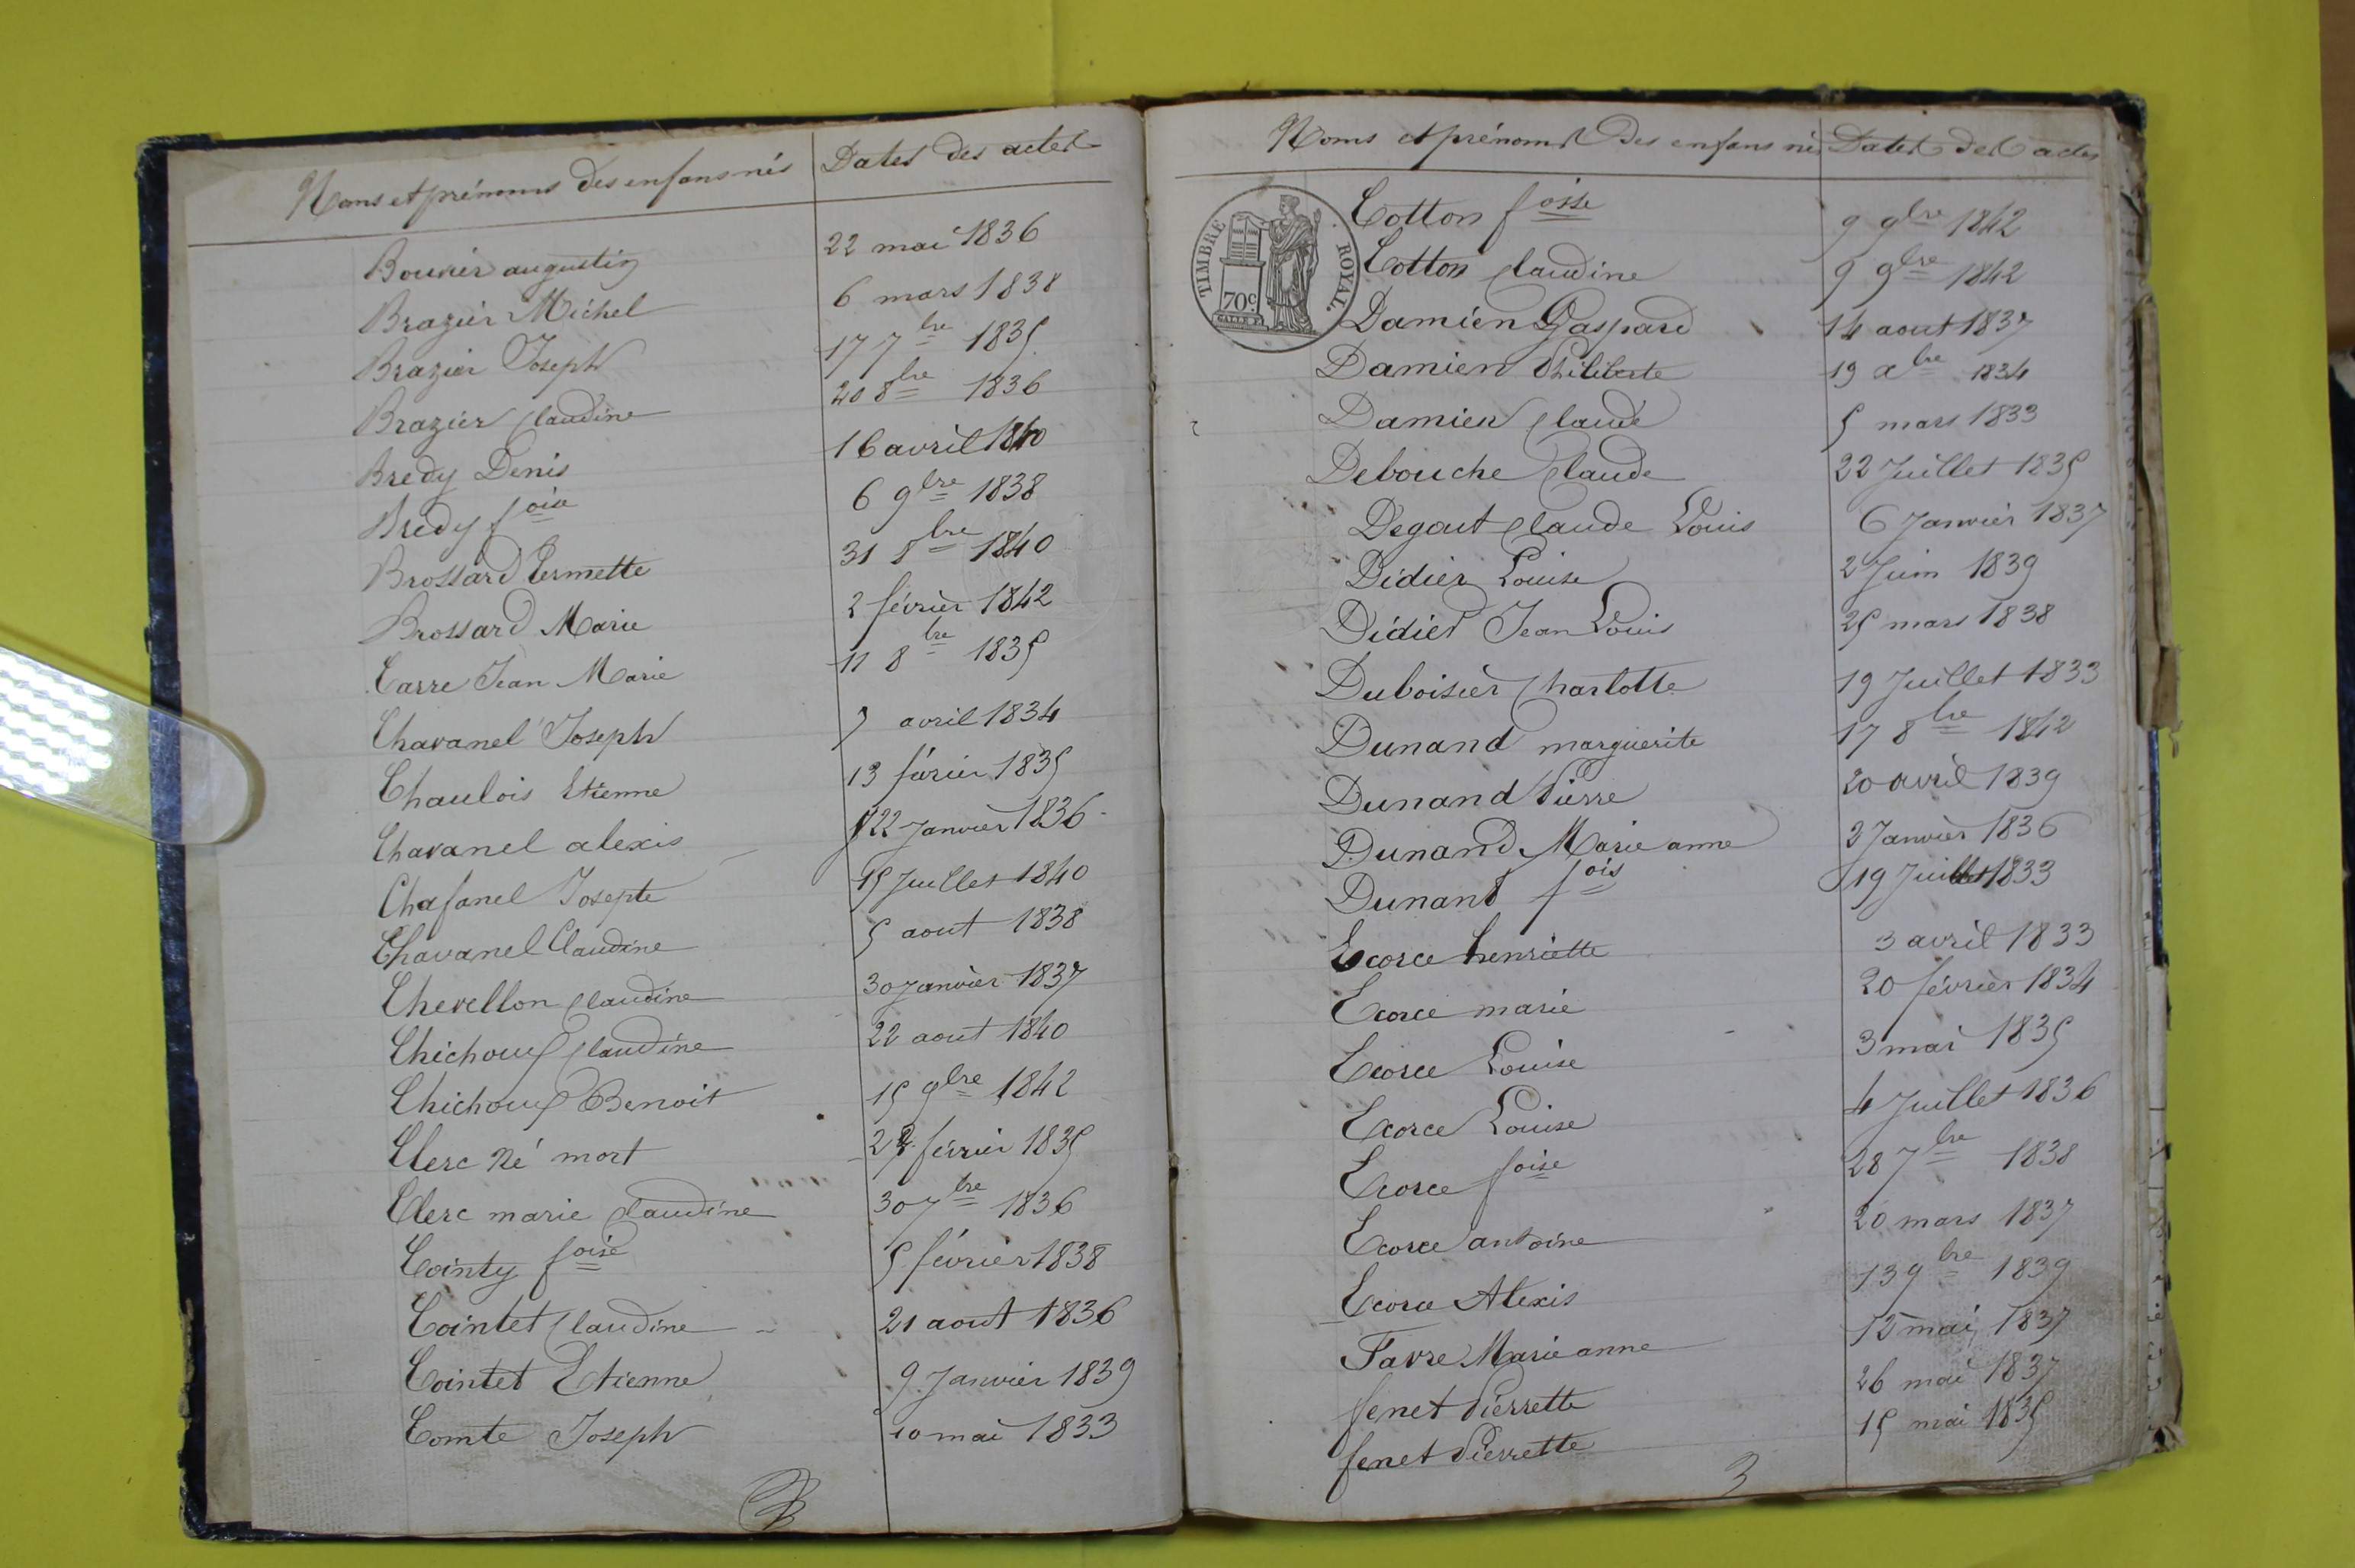 Noms et prénoms des enfans nés Dates des actes
Bouvier augustin 22 mai 1836
Brazier Michel 6 mars 1838
Brazier Joseph 17 7bre 1835
Brazier Claudine 20 8bre 1836
Bredy Denis 16 avril 1840
Bredy fois 6 9bre 1838
Brossard Pernette 31 8bre 1840
Brossard Marie 2 février 1842
Carre Jean Marie 11 8bre 1835
Chavanel Joseph 7 avril 1834
Chaulois Etienne 13 février 1835
Chavanel alexis 22 Janvier 1836
Chafanel Josepte 15 Juillet 1840
Chavanel Claudine 5 aout 1838
Chevellon Claudine 30 Janvier 1837
Chichoux Claudine 22 aout 1840
Chichoux Benoit 15 9bre 1842
Clerc Né mort février 1835
Clerc marie Claudine 30 7bre 1836
Cointy foise 5 février 1838
Cointet Claudine 21 aout 1836
Cointet Etienne 9 Janvier 1839
Comte Joseph 10 mai 1833
Noms et prénoms des enfans nés Dates des actes
TIMBRE ROYAL.
70c
Cotton foise 9 9bre 1842
Cotton Claudine 9 9bre 1842
Damien Gaspard 14 aout 1837
Damien Philiberte 19 xbre 1834
Damien Claude 5 mars 1833
Debouche Claude 22 Juillet 1835
Degout Claude Louis 6 Janvier 1837
Didier Louise 2 Juin 1839
Didier Jean Louis 25 mars 1838
Duboisier Charlotte 19 Juillet 1833
Dunand marguerite 17 8bre 1842
Dunand Pierre 20 avril 1839
Dunand Marie anne 2 Janvier 1836
Dunand fois 19 Juillet 1833
Ecorce henriette 3 avril 1833
Ecorce marie 20 février 1834
Ecorce Louise 3 mai 1835
Ecorce Louise 4 Juillet 1836
Ecorce foise 28 7bre 1838
Ecorce antoine 20 mars 1837
Ecorce Alexis 13 9bre 1839
Favre Marie anne 12 mai 1837
fenet Pierrette 26 mai 1837
fenet Pierrette 15 mai 1835
3